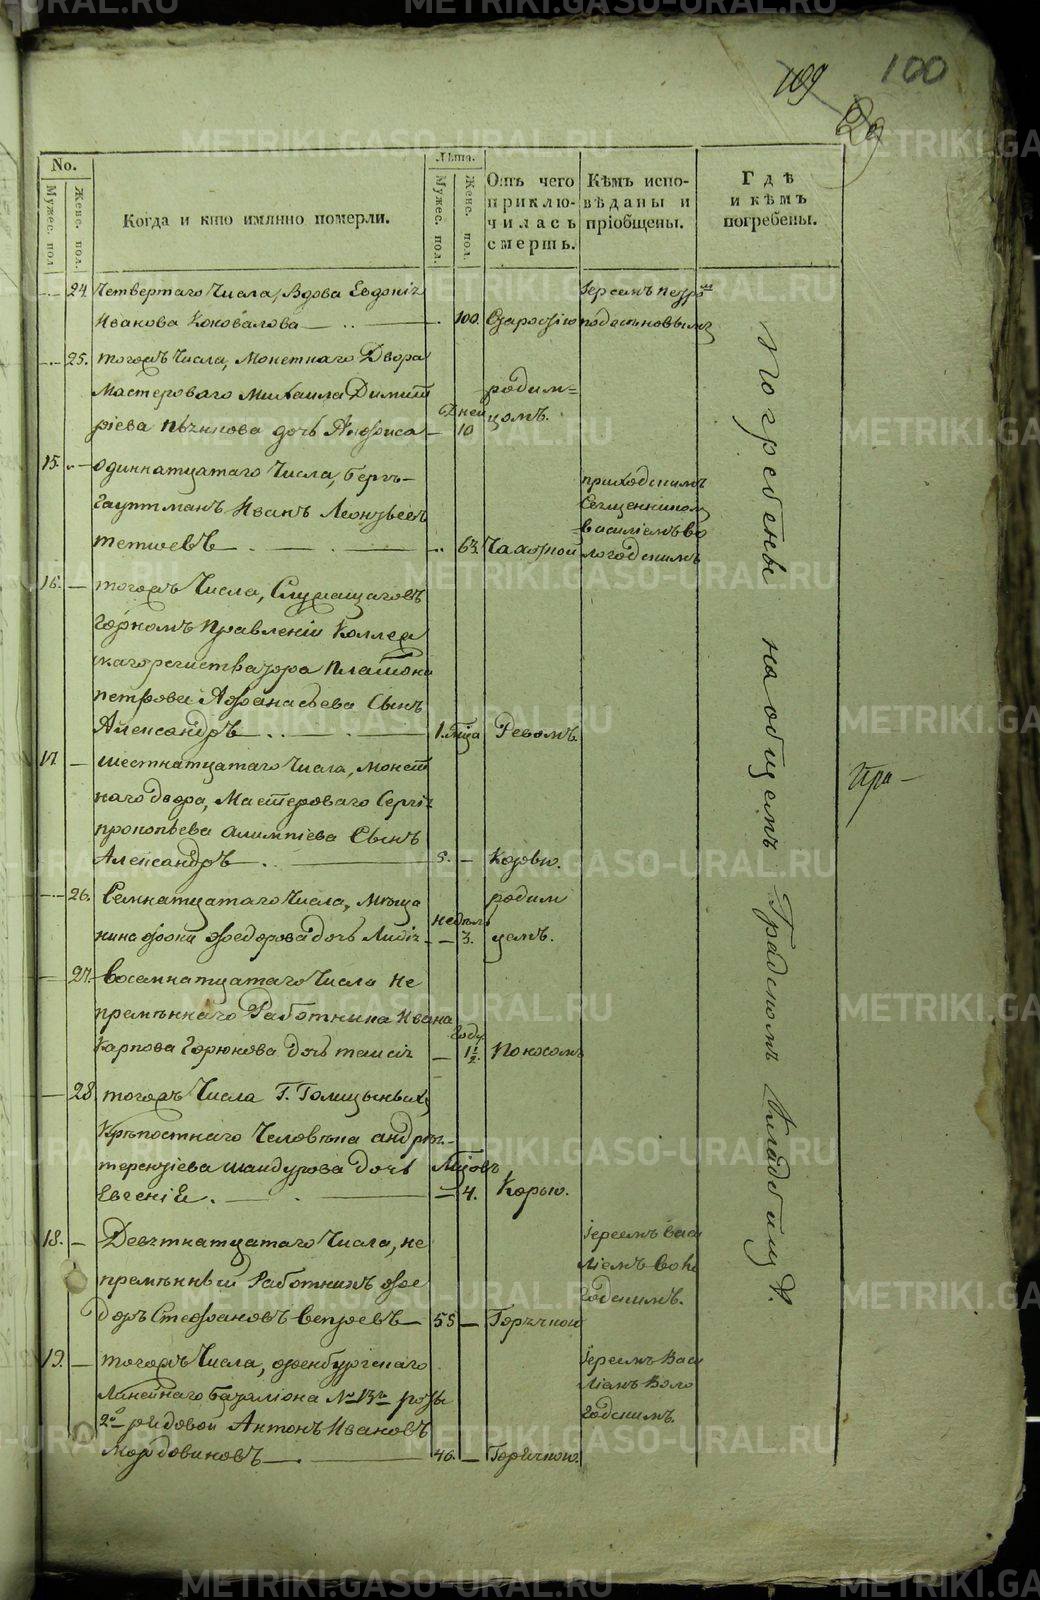 109
100
29
No.
Мужес. пол.
Женс. пол.
Когда и кто имянно померли.
Лѣта.
Мужес. пол.
Женс. пол.
Отъ чего приключилась смерть.
Кѣмъ исповѣданы и пріобщены.
Гдѣ и кѣмъ погребены.
24 Четвертаго Числа, Вдова Евдокія
Иванова Коновалова 100. Старостію
Іереемъ Петромъ
25. тогожъ Числа, Монетнаго Двора
Мастероваго Михаила Димит
ріева дочь Анфиса дней 10 родим=
цомъ.
15. Одиннатцатаго Числа, Бергъ-
гауптманъ Иванъ Леонтьевъ
63. Чахоткой
приходскимъ
Священникомъ
Василіемъ Во
логодскимъ
16. тогожъ Числа, Служащаговъ
Горномъ Правленіи Коллеж
скагорегистратора Платона
Петрова Афанасьева Сынъ
Александръ 1. Ревомъ.
17 Шестнатцатаго Числа, Монет
наго двора, Мастероваго Сергія
Прокопьева Алимпіева Сынъ
Александръ 5. Корью.
26. Семнатцатаго Числа, Мѣща
нина Фоки Федорова дочь Лидія недѣль 3. родим
цемъ.
27. Восемнатцатаго Числа Не
премѣннаго Работника Ивана
Карпова Горюнова дочь Таисія году 1½ Поносомъ
28. тогожъ Числа Г. Голицыныхъ
Крѣпостнаго Человѣка Андрея
Терентіева Шандурова дочь
Евгенія. Мцовъ 4. Корью.
18. Девятнатцатаго Числа, не
премѣнный Работникъ Фео
доръ Стефановъ 55 Горячкою
Іереемъ Васи
ліемъ Воло
годскимъ.
19. тогожъ Числа, Оренбургскаго
Линейнаго Баталіона № 13го роты
2й рядовой Антонъ Ивановъ
Мордовиновъ 46. Горячкою.
Іереемъ Васи
ліемъ Воло
годскимъ
Погребены на общемъ Градскомъ Кладбищѣ.
Пра-
METRIKI.GASO-URAL.RU